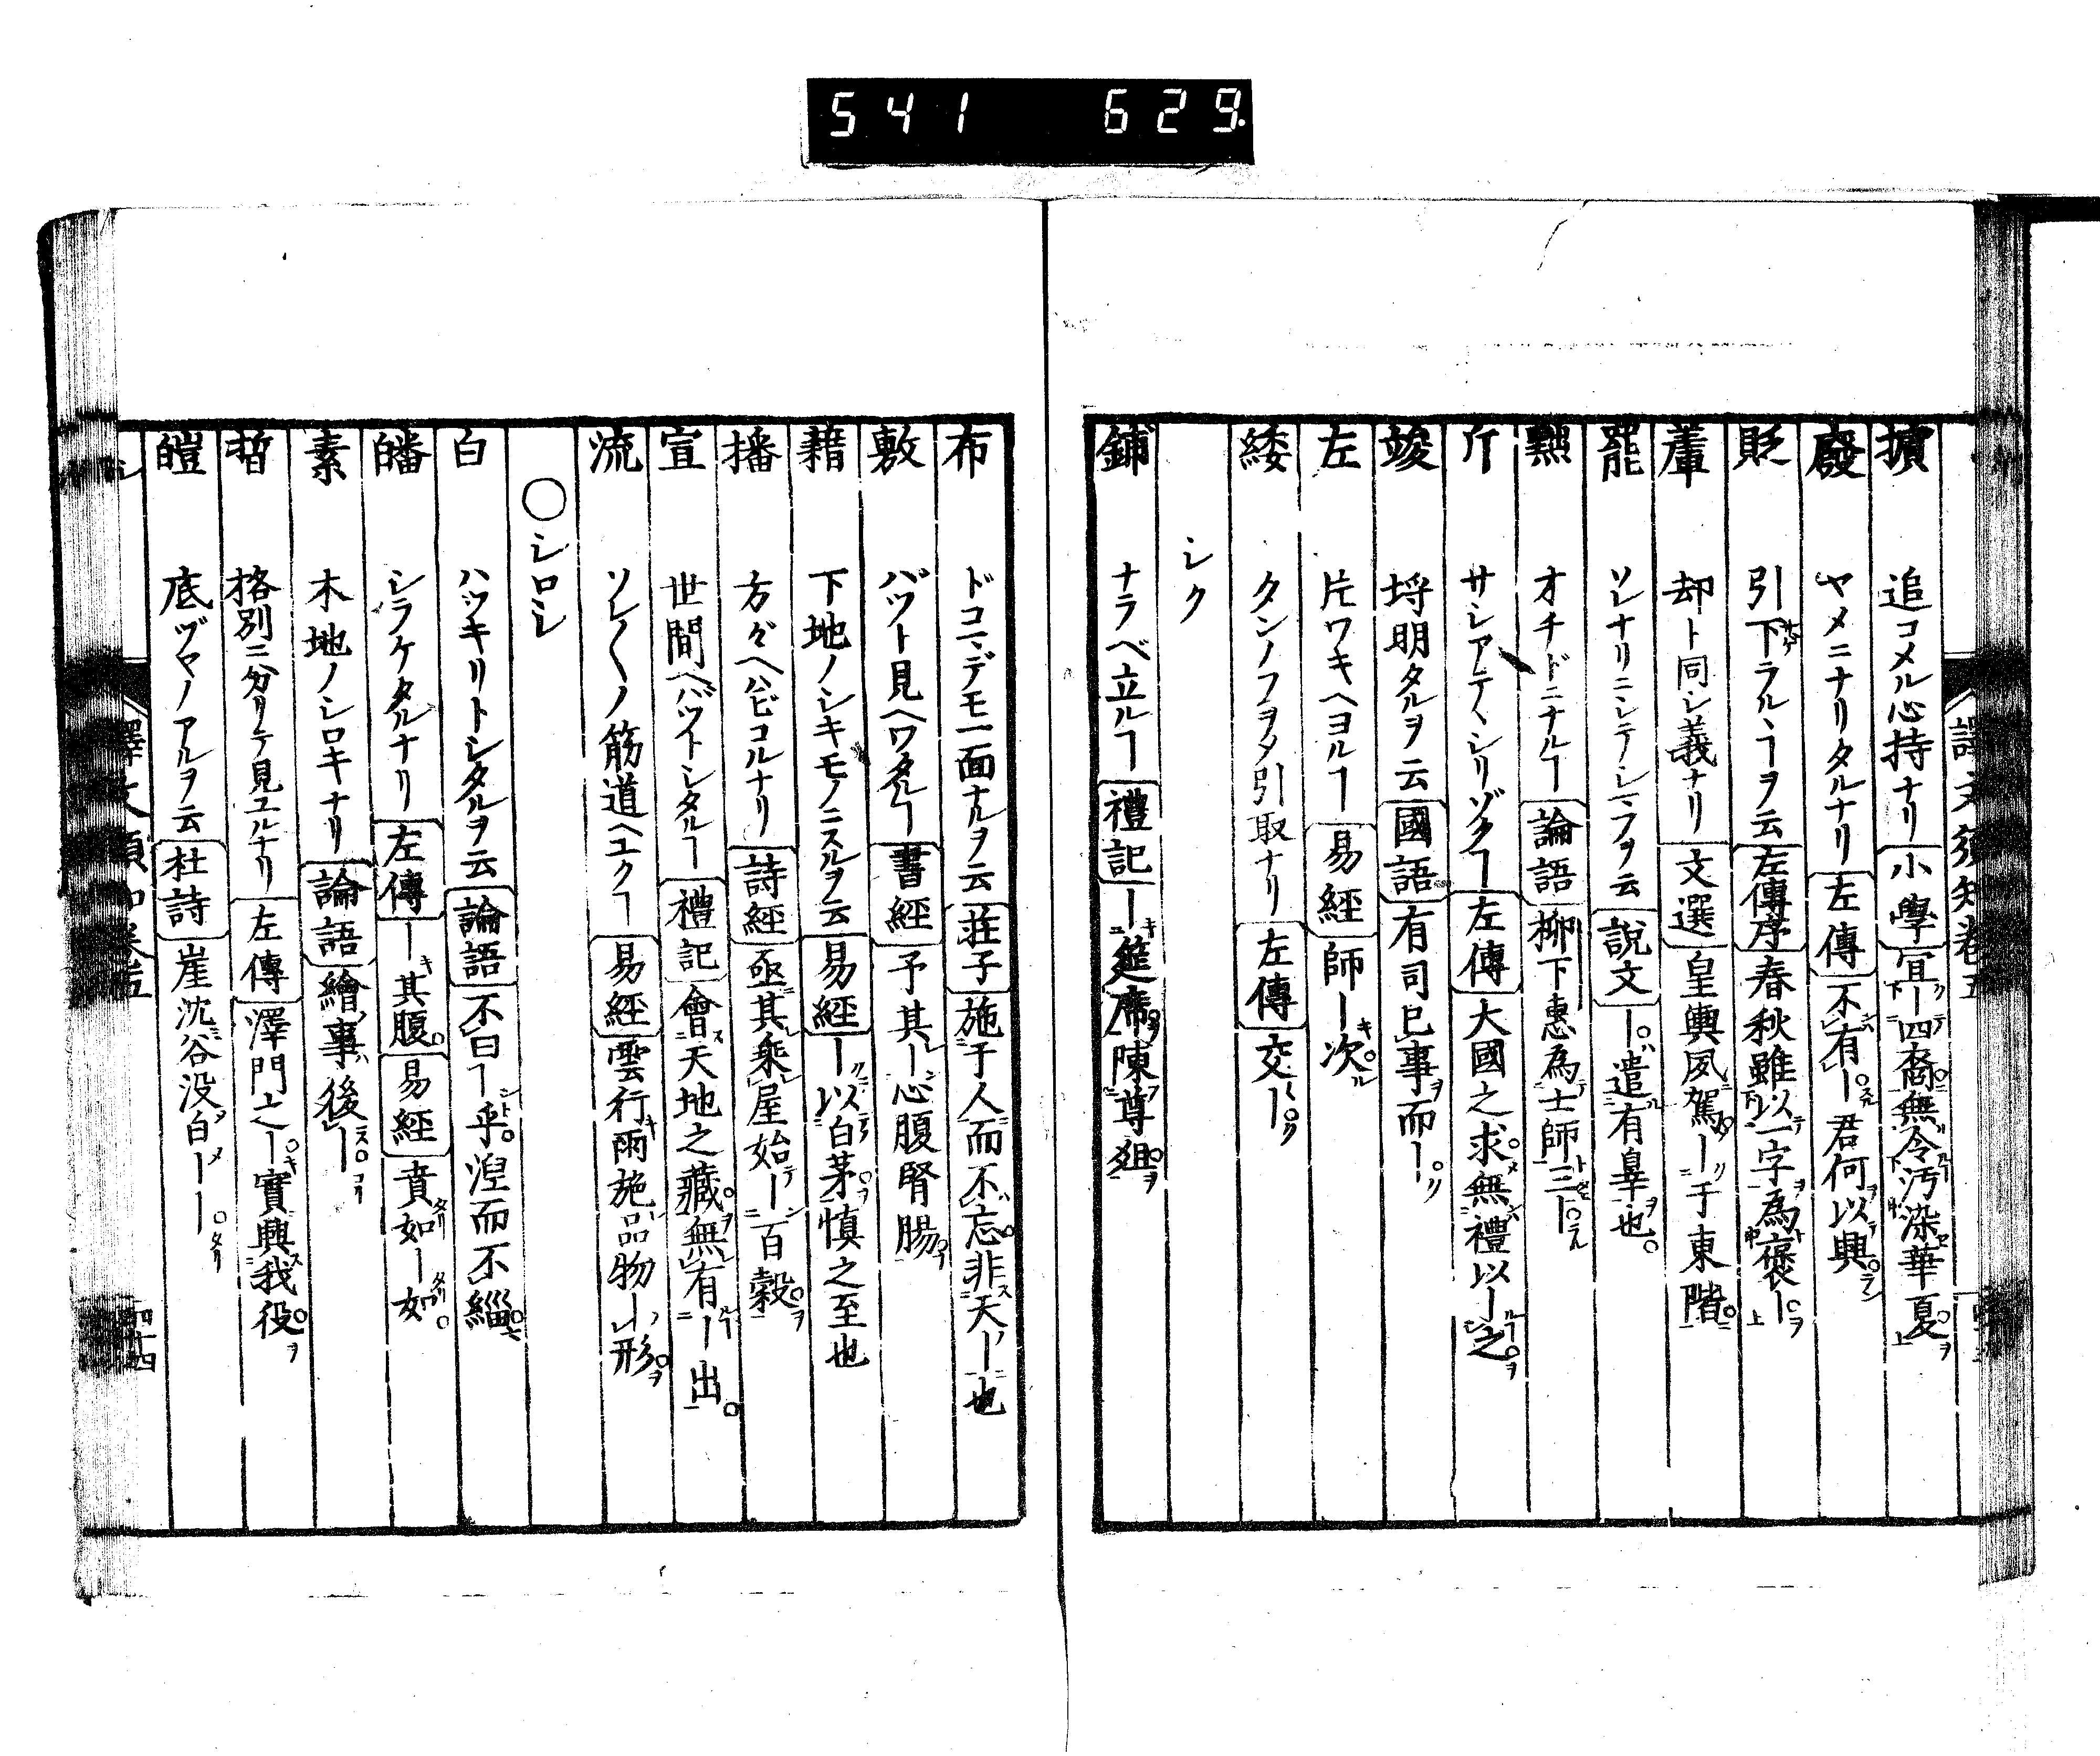 541 629.
譯文須知卷五
擯 追コメル心持ナリ 小學 宜ー四裔無令汚染華夏
廢 ヤメニナリタルナリ 左傳 不有ー君何以興
貶 引下ラルヽヿヲ云 左傳序 春秋雖以一字為褒ー
輦 却ト同シ義ナリ 文選 皇輿夙駕ー于東階
罷 ソレナリニシテシマフヲ云 說文 ー遣有辠也
黜 オチドニナルヿ 論語 柳下惠為士師三ー
斥 サシアテヽシリゾクヿ 左傳 大國之求無禮以ー之
竣 埒明タルヲ云 國語 有司已事而ー
左 片ワキヘヨルヿ 易經 師ー次
綏 タンノフヲヲ引取ナリ 左傳 交ー
シク
鋪 ナラベ立ルヿ 禮記 ー筵席陳尊俎
布 ドコニデモ一面ナルヲ云 莊子 施于人而不忘非天ー也
敷 バツト見ヘワタルヿ 書經 予其ー心腹腎腸
藉 下地ノシキモノニスルヲ云 易經 ー以白茅慎之至也
播 方々ヘハビコルナリ 詩經 亟其乘屋始ー百穀
宣 世間ヘバツトシタルヿ 禮記 會天地之藏無有ー出
流 ソレ〱ノ筋道ヘユクヿ 易經 雲行雨施品物ー形
○シロシ
白 ハツキリトシタルヲ云 論語 不曰ー乎涅而不緇
皤 シラケタルナリ 左傳 ー其腹 易經 賁如ー如
素 木地ノシロキナリ 論語 繪事後ー
晳 格別ニ分リテ見ユルナリ 左傳 澤門之ー實興我役
皚 底ヅヤノアルヲ云 杜詩 崖沈谷没白ーー
譯文須知卷五 四十四